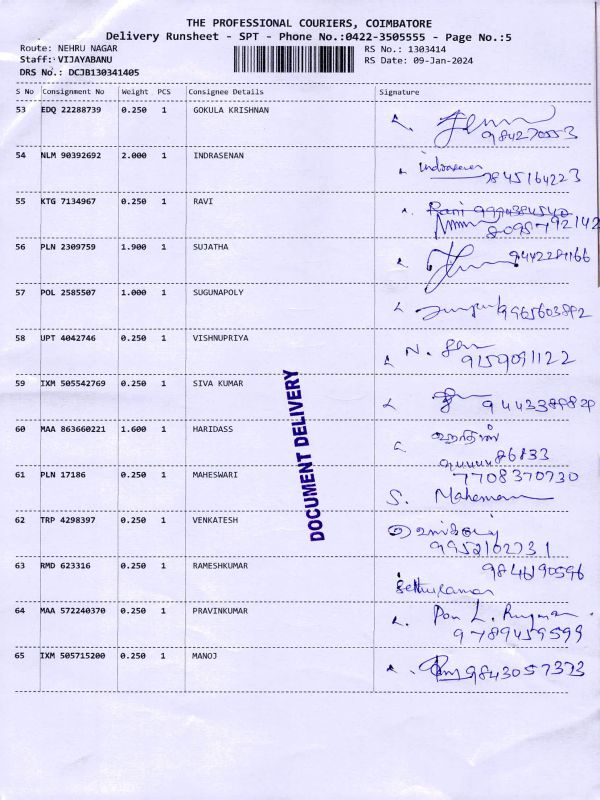 THE PROFESSIONAL COURIERS, COIMBATORE
Delivery Runsheet - SPT - Phone No.:0422-3505555 - Page No.:5
Route: NEHRU NAGAR
RS No.: 1303414
Staff: VIJAYABANU
RS Date: 09-Jan-2024
DRS No.: DCJB130341405
S No Consignment No Weight PCS Consignee Details Signature
53 EDQ 22288739 0.250 1 GOKULA KRISHNAN
54 NLM 90392692 2.000 1 INDRASENAN Indrasenan
7845164223
55 KTG 7134967 0.250 1 RAVI
8095792142
56 PLN 2309759 1.900 1 SUJATHA
57 POL 2585507 1.000 1 SUGUNAPOLY
58 UPT 4042746 0.250 1 VISHNUPRIYA
9159091122
59 IXM 505542769 0.250 1 SIVA KUMAR
60 MAA 863660221 1.600 1 HARIDASS
86833
61 PLN 17186 0.250 1 MAHESWARI 7708370730
62 TRP 4298397 0.250 1 VENKATESH
9952102731
63 RMD 623316 0.250 1 RAMESHKUMAR
Sethuraman
64 MAA 572240370 0.250 1 PRAVINKUMAR
9789459599
65 IXM 505715200 0.250 1 MANOJ 9843057373
DOCUMENT DELIVERY